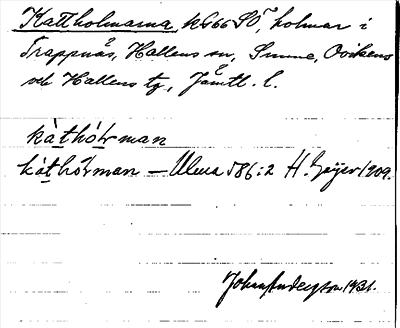 Kattholmarna, k566 SO, holmar i
Trappnäs, Hallens sn, Sunne, Ovikens
och Hallens tg, Jämtl. l.
kàthórman
kàthórman — Ulma 586:2 H. Geijer 1909.
Johan Anderzon 1931.